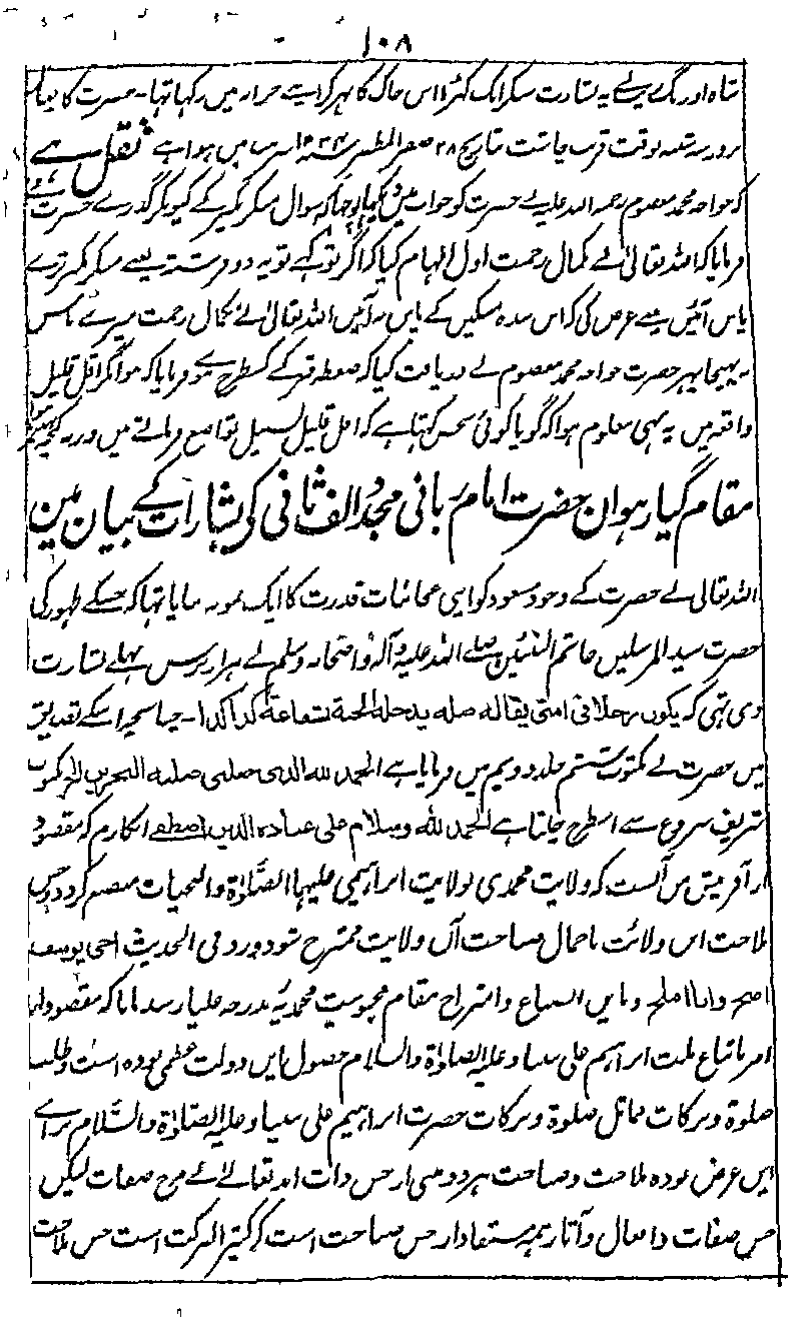 ۱۰۸
شاہ اورنگ زیب نے یہ بشارت سنکر ایک کٹہرا اس خاک کا بہر کر اپنے خزانہ میں رکہا تہا۔ حضرت کا
روز سہ شنبہ بوقت قریب چاشت بتاریخ ۲۸ صفر المظفر سنہ ۱۰۳۴ میں ہوا ہے نقل ہے
کہ خواجہ محمد معصوم رحمۃ اللہ علیہ نے حضرت کو خواب میں دیکہا پوچہا کہ سوال منکر نکیر کے کیونکر گذرے حضرت نے
فرمایا کہ اللہ تعالیٰ نے کمال رحمت اول الہام کیا کہ اگر تو کہے تو یہ دو فرشتہ یعنے منکر نکیر تیرے
پاس آئیں میں نے عرض کی کہ اس بندہ مسکین کے پاس نہ آئیں اللہ تعالیٰ نے کمال رحمت میرے پاس
نہ بہیجا پہر حضرت خواجہ محمد معصوم نے دریافت کیا کہ ضغطہ قبر کے کسطرح ہے فرمایا کہ ہوا مگر اقل قلیل
واقعہ میں یہ بہی معلوم ہوا کہ گویا کوئی شخص کہتا ہے کہ اقل قلیل بسبیل تواضع فرماتے ہیں ورنہ کچہ
مقام گیارہوان حضرت امام ربانی مجدد الف ثانی کی بشارات کے بیان مین
اللہ تعالیٰ نے حضرت کے وجود مسعود کو اپنی عجائبات قدرت کا ایک نمونہ بنایا تہا کہ جسکے ظہور کی
حضرت سید المرسلین خاتم النبیین صلے اللہ علیہ وآلہ واصحابہ وسلم نے ہزار برس پہلے بشارت
دی تہی کہ یکون رجلا فی امتی یقال له صله یدخل الجنة بشفاعته کذا کذا۔ چنانچہ اسکے تصدیق
میں حضرت نے مکتوب ششم جلد دویم میں فرمایا ہے الحمد لله الذی جعلنی صلة بین البحرین اور مکتوب
شریف شروع سے اسطرح چلتا ہے الحمد لله وسلام علی عباده الذین اصطفے انکارم کہ مقصود
از آفرینش من آنست کہ ولایت محمدی بولایت ابراہیمی علیہما الصلوٰۃ والتحیات منضم گردد وحسن
ملاحت این ولایت باجمال صباحت آن ولایت ممتزج شود ورد فی الحدیث اخی یوسف
اصبح وانا املح وباین انصباغ وامتزاج مقام محبوبیت محمدیہ بدرجہ علیا رسد مانا کہ مقصود از
امر باتباع ملت ابراہیم علی نبینا وعلیہ الصلوٰۃ والسلام حصول این دولت عظمی بودہ است وطلب
صلوٰۃ وبرکات مماثل صلوٰۃ وبرکات حضرت ابراہیم علی نبینا وعلیہ الصلوٰۃ والسلام برائے
این غرض بودہ ملاحت وصباحت ہر دو مبنی از حسن ذات اند تعالیٰ بے مزج صفات لیکن
حسن صفات وافعال وآثار ہمہ مستفاد از حسن صباحت است کہ کثیر البرکت است حسن ملاحت